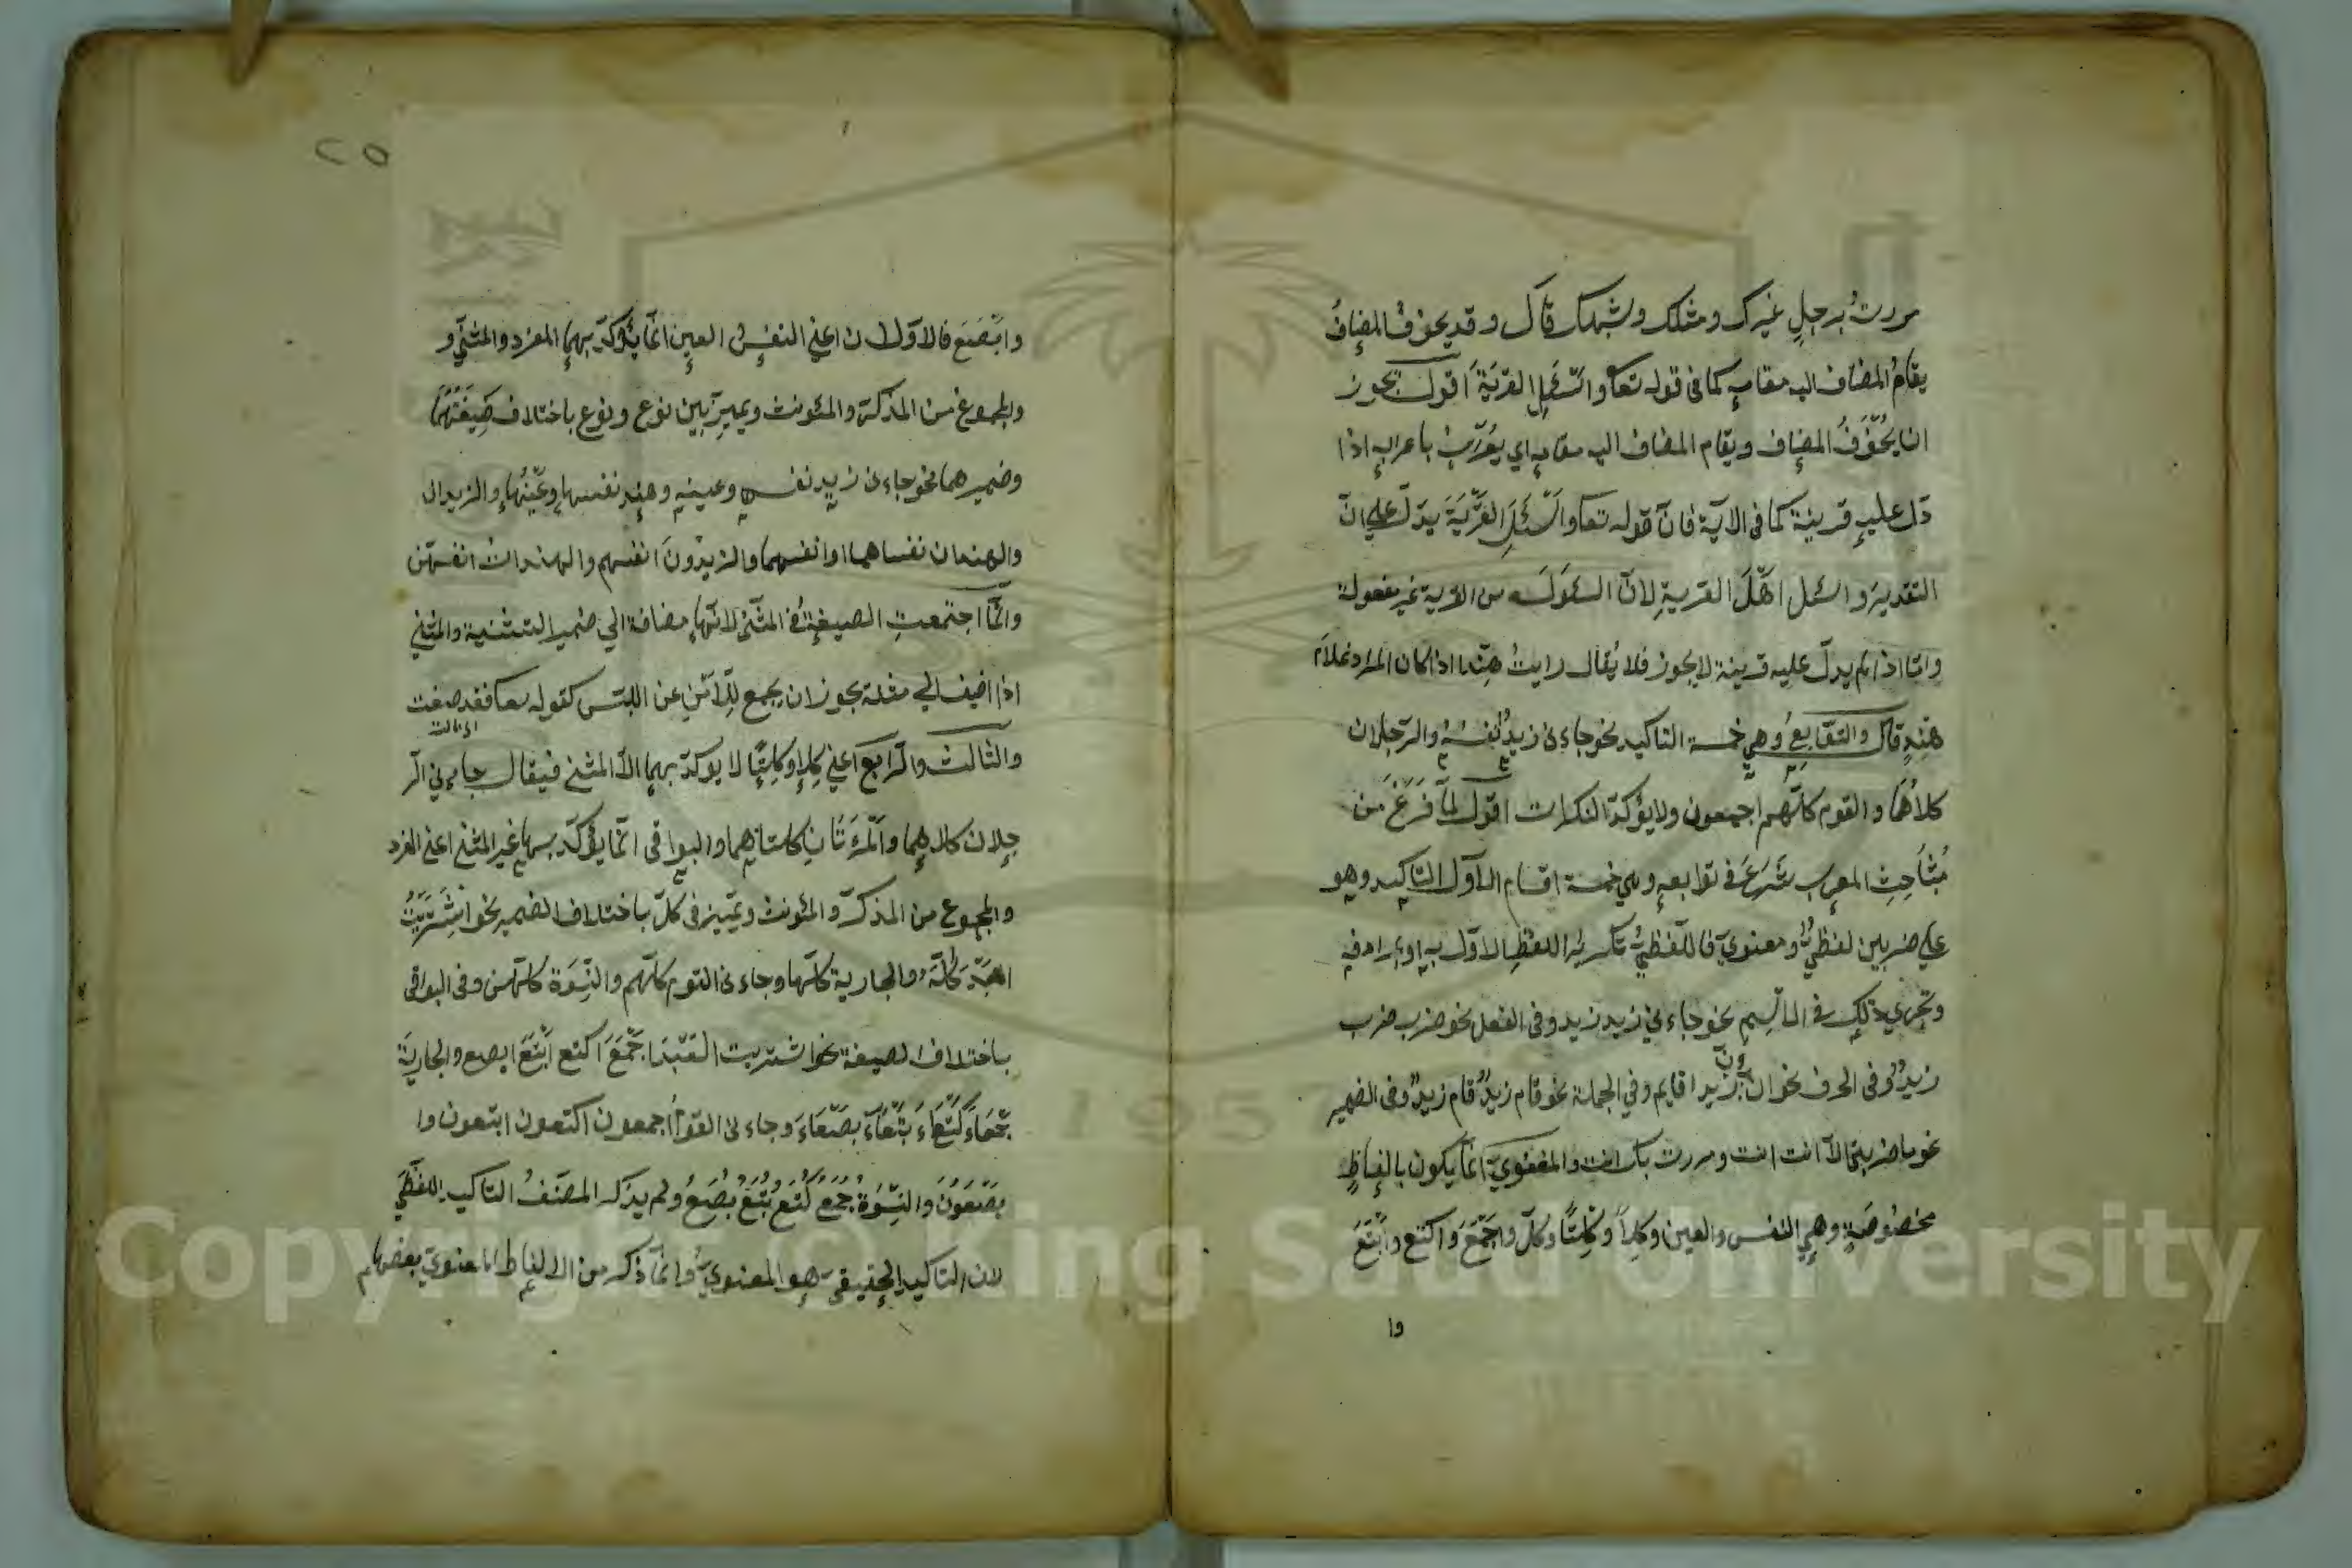 مررتُ برجلٍ غيرك ومثلك وشبهك قال وقد يحذف المضافُ
يقامُ المضاف اليه مقامه كما فى قوله تعا واسْئَلِ القَرْيَةَ اقول يجوز
ان يُحْذَفَ المضاف ويقام المضاف اليه مقامه اي يُعْرَبُ باعرابه اذا
دَلّ عليه قرينة كما فى الآية فانّ قوله تعا واسْئَلِ القَرْيَةَ يدلّ علي انّ
التقديرَ واسئل اَهْلَ القرية لانّ السئوال من القرية غير معقولة
وامّا اذا لم يدلّ عليه قرينة لا يجوز فلا يُقال رايتُ هِنْدا اذا كان المراد غلامَ
هِنْدٍ قال والتَّوَابِعُ وهي خمسة التاكيد نحو جاءنى زيدٌ نَفْسُهُ والرّجلان
كلاهُمَا والقوم كلّهم اجمعون ولا يؤكّد النكرات اقول لمّا فَرَغَ مِن
مَبَاحِثِ المعرب شَرَعَ فى توابعه وهي خمسة اقسام الاوّل التاكيد وهو
علي ضربين لفظيٌّ ومعنويّ فاللّفظيُّ تكريرُ اللفظِ الاوّل به او بمرادفه
وتجري ذلك فى الاسم نحو جاءني زيد زيد وفى الفعل نحو ضرب ضرب
زيدٌ وفى الحرف نحو انّ انّ زيدا قايم وفي الجملة نحو قام زيدٌ قام زيدٌ وفى الضمير
نحو ما ضربنى الّا انت انت ومررت بك انت والمعنويّ انّما يكون بالفاظٍ
مخصُوصَةٍ وهي النفس والعين وكِلَا وكِلْتَا وكلّ واَجْمَعَ واكتع واَبْتَعَ
وا
٢٥
واَبْصَعَ فالاوّلان اعني النفسُ العين انّما يُؤكّد بهما المفرد والمثنّي و
والمجموع من المذكّر والمئونث ويميز بين نوع ونوع باختلاف صِيغَتِهِمَا
وضميرهما نحو جاءنى زيد نفسه وعينه وهند نفسها وعَيْنُها والزيدان
والهندان نفساهما او انفسهما والزيدُونَ انفسهم والهندات انفسهنّ
وانّما اجتمعتِ الصيغة فى المثنّي لانّها مضافة الي ضمير التثنية والمثني
اذا اضيف الي مثله يجوز ان يجمع لِلْاَمْنِ عن اللبس كقوله تعا فقد صغت
والثالث والرّابع اعني كِلا وكِلتَا لا يؤكّد بهما الّا المثني فيقال جاءني الرّ
جلان كلاهما والمَرْءَتَانِ كلتاهما والبواقى انّما يؤكّد بها غير المثنى اعني المفرد
والمجموع من المذكّر والمئونث ويميّز فى كلّ باختلاف الضمير نحو اشْتَرَيْتُ
العبد كُلَّهُ والجارية كلّها وجاءنى القوم كلّهم والنِّسْوَة كلّهنّ وفى البواقى
باختلاف الصيغة نحو اشتريت العَبْدَ اَجْمَعَ اكتع اَبْتَعَ ابصع والجاريَةَ
جَمْعَاءَ كَتْعَاءَ بَتْعَاءَ بَصْعَاءَ وجاءنى القومُ اجمعون اكتعون ابتعون وا
بصَعُونَ والنِّسْوَةُ جُمَعُ كُتَعُ بُتَعُ بُصَعُ ولم يذكر المصنّفُ التاكيد اللفظيّ
لان التاكيد الحقيقيّ هو المعنويّ وانّما ذكر من الالفاظ المعنويّ بعضها